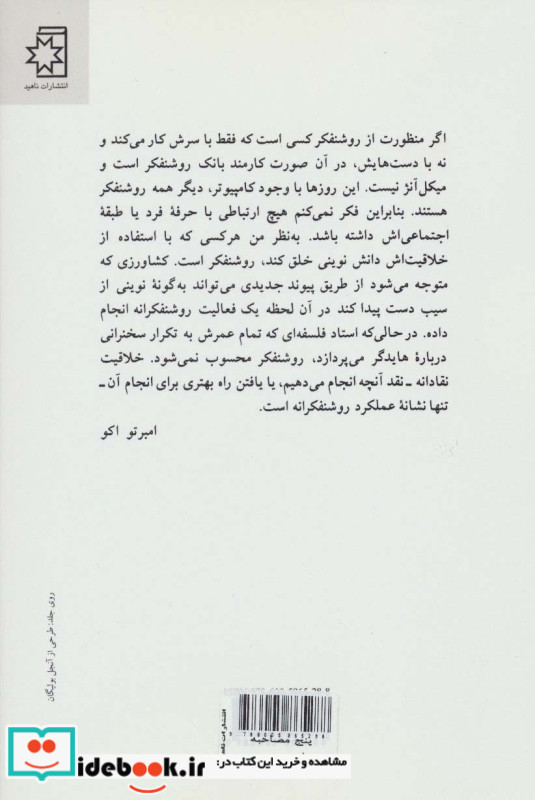 انتشارات ناهید
اگر منظورت از روشنفکر کسی است که فقط با سرش کار می‌کند و
نه با دست‌هایش، در آن صورت کارمند بانک روشنفکر است و
میکل‌آنژ نیست. این روزها با وجود کامپیوتر، دیگر همه روشنفکر
هستند. بنابراین فکر نمی‌کنم هیچ ارتباطی با حرفهٔ فرد یا طبقهٔ
اجتماعی‌اش داشته باشد. به‌نظر من هرکسی که با استفاده از
خلاقیت‌اش دانش نوینی خلق کند، روشنفکر است. کشاورزی که
متوجه می‌شود از طریق پیوند جدیدی می‌تواند به‌گونهٔ نوینی از
سیب دست پیدا کند در آن لحظه یک فعالیت روشنفکرانه انجام
داده. در حالی‌که استاد فلسفه‌ای که تمام عمرش به تکرار سخنرانی
دربارهٔ هایدگر می‌پردازد، روشنفکر محسوب نمی‌شود. خلاقیت
نقادانه ـ نقد آنچه انجام می‌دهیم، یا یافتن راه بهتری برای انجام آن ـ
تنها نشانهٔ عملکرد روشنفکرانه است.
امبرتو اکو
روی جلد: طرحی از آنجل بولیگان
پنج مصاحبه
مشاهده و خرید این کتاب در:
idebook.ir